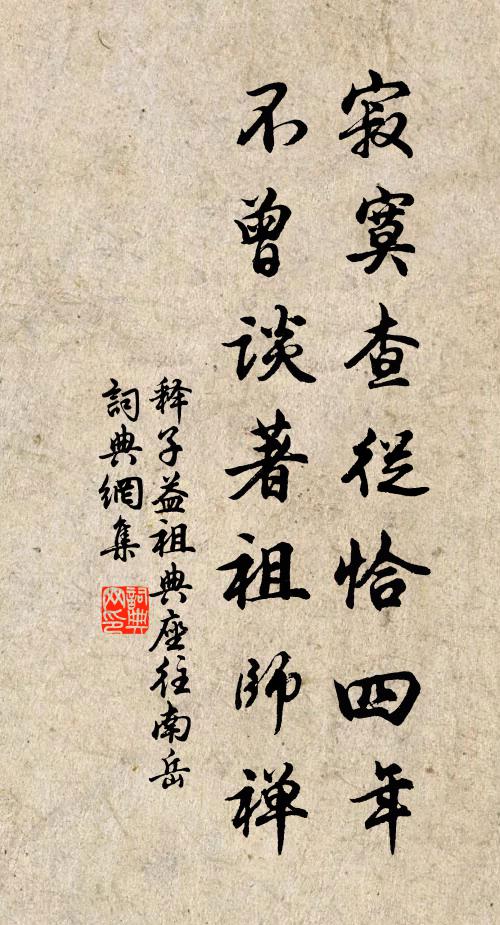 寂寞查從恰四年
不曾談著祖師禅
释子益祖典座往南岳
詞典網集
詞典
网印